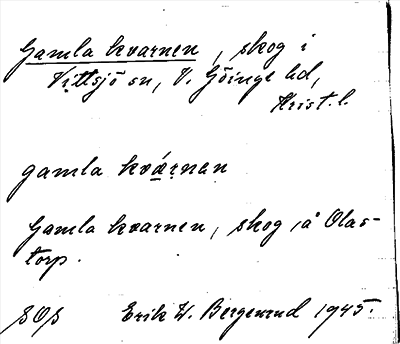 Gamla kvarnen, skog i
Vittsjö sn, V. Göinge hd,
Krist. l.
gamla kvárnan
Gamla kvarnen, skog på Olas-
torp.
SOS Erik W. Bergenrud 1945.